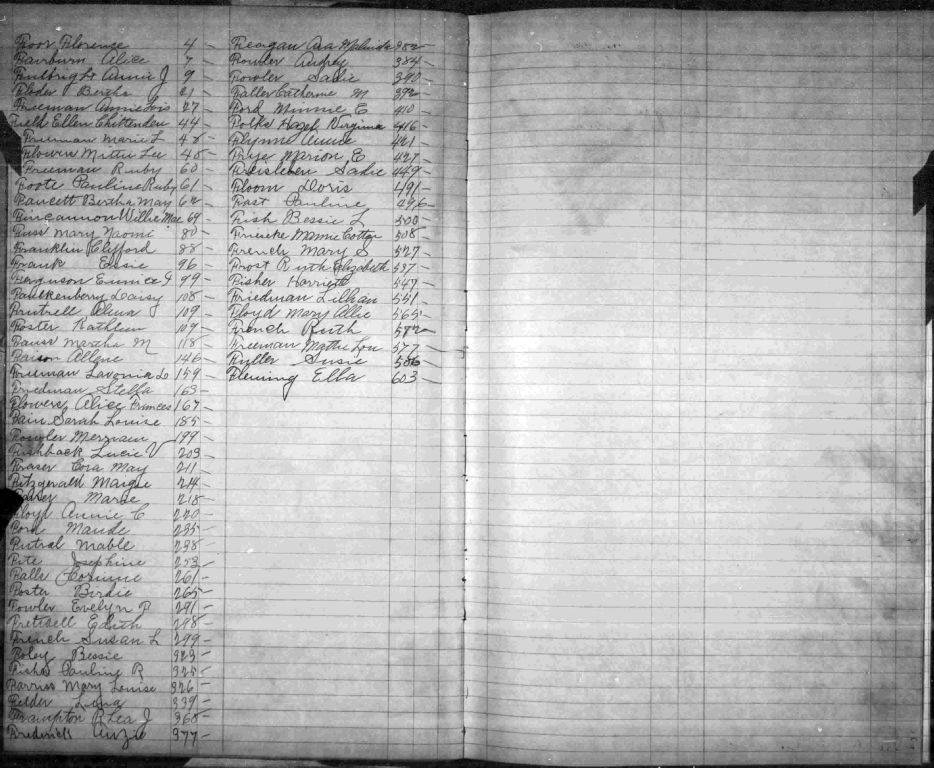 Foor Florence 4
Fairburn Alice 7
Annie J 9
Bertha 21
Freeman Annie Lois 27
Field Ellen Chittenden 44
Freeman Marie L 48
Flowers Mittie Lee 48
Freeman Ruby 60
Foote Pauline Ruby 61
Faucett Bertha May 62
Fincannon Willie Mae 69
Fuss Mary Naomi 80
Franklin Clifford 88
Frank Essie 96
Ferguson Eunice 99
Faulkenberry Daisy 108
Futrell Alma 109
Foster Kathleen 109
Fauss Martha M 118
Faison Allene 146
Freeman Lavonia Lo 159
Friedman Stella 163
Flowers Alice Frances 167
Fain Sarah Louise 185
Fowler Merriam 199
Fishback Lucie V 203
Fraser Cora May 211
Fitzgerald Margie 214
Marie 218
Floyd Annie C 220
Ford Maude 235
Futral Mable 238
Fite Josephine 253
Falls Corinne 261
Foster Birdie 265
Fowler Evelyn P 291
Edith 298
French Susan L 299
Foley Bessie 323
Fisher Pauline R 325
Farriss Mary Louise 326
Felder Lona 339
Frampton Rhea J 368
Frederick Auzie 377
Feagan Ara Malinda 382
Fowler Audrey 384
Fowler Sadie 390
Faller Catherine M 392
Ford Minnie E 410
Folks Hazel Virginia 416
Flynne Annie 421
Frye Marion E 427
Freisleben Sadie 449
Floom Doris 491
Fast Pauline 496
Fish Bessie L 500
Friecke Mamie Cottge 508
French Mary S 527
Frost Ruth Elizabeth 537
Fisher Harriette 547
Friedman Lillian 551
Floyd Mary Allie 565
French Ruth 572
Freeman Mattie Lou 577
Fuller Susie 586
Fleming Ella 603